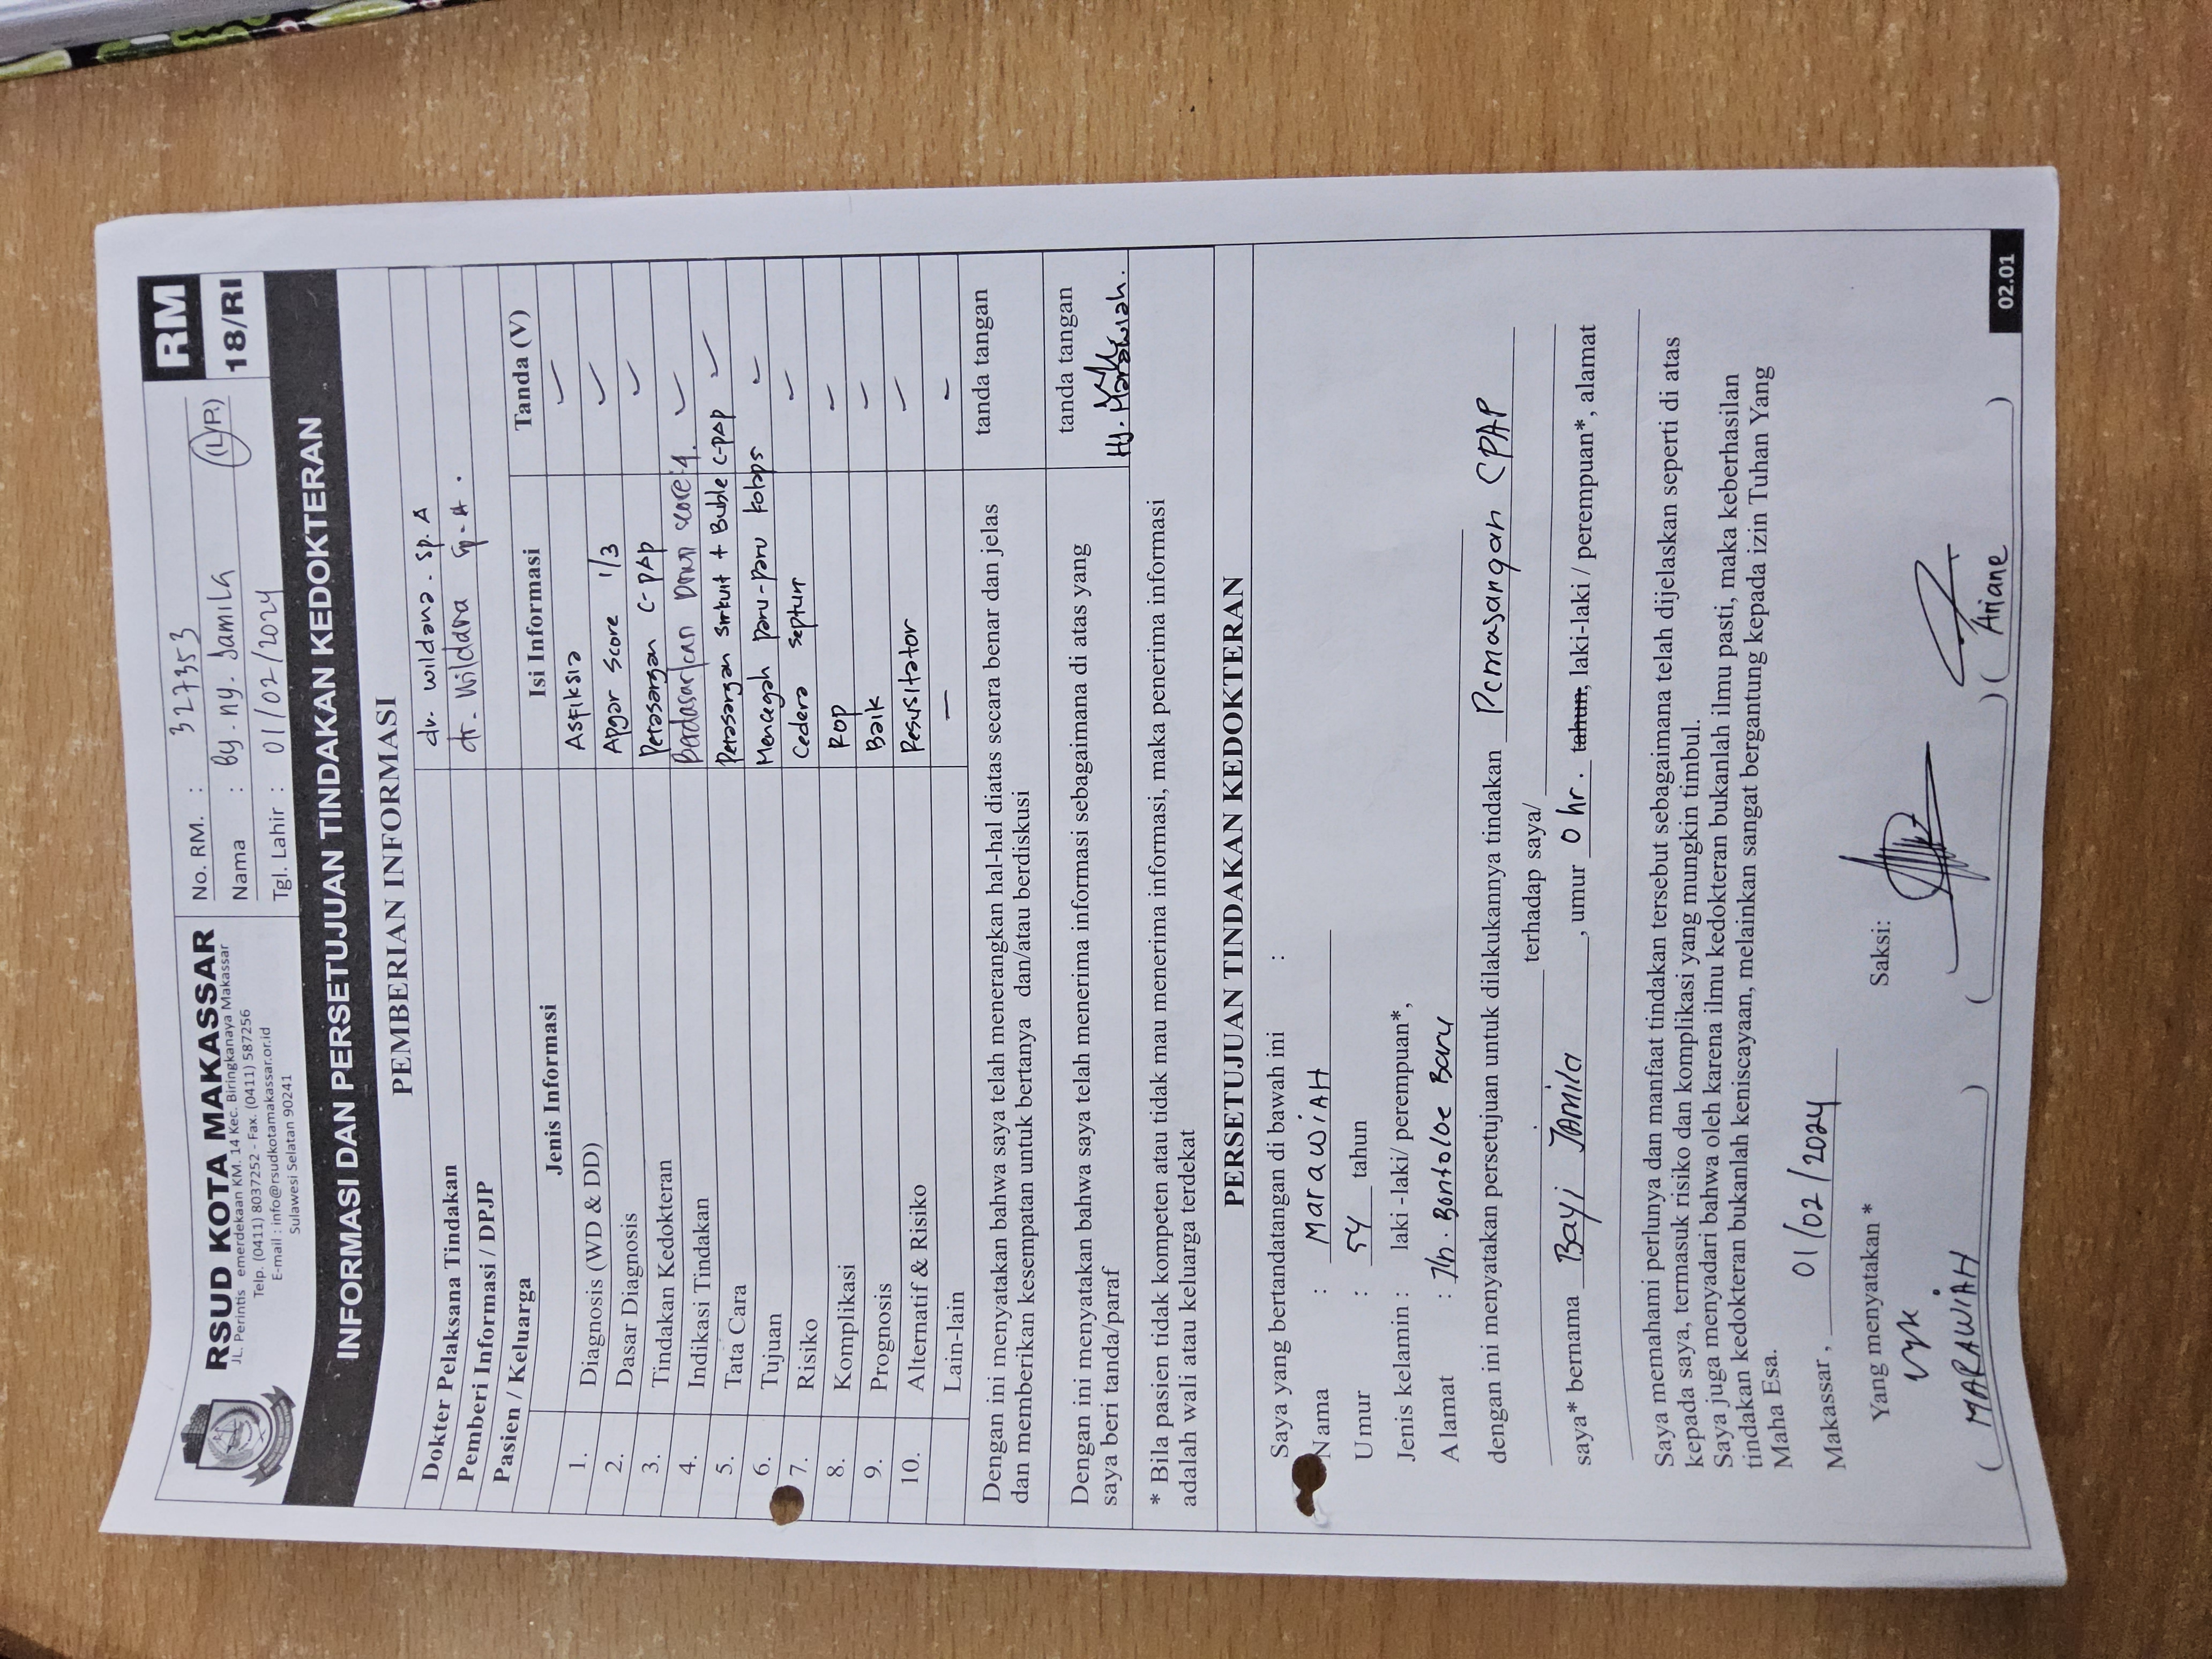 RSUD KOTA MAKASSAR
JL. Perintis emerdekaan KM. 14 Kec. Biringkanaya Makassar
Telp. (0411) 8037252 - Fax. (0411) 587256
E-mail : info@rsudkotamakassar.or.id
Sulawesi Selatan 90241
No. RM. : 327353
Nama : By. ny. Jamila (L/P.)
Tgl. Lahir : 01/02/2024
RM
18/RI
INFORMASI DAN PERSETUJUAN TINDAKAN KEDOKTERAN
PEMBERIAN INFORMASI
Dokter Pelaksana Tindakan dr. wildana. Sp. A
Pemberi Informasi / DPJP dr. Wildana Sp. A.
Pasien / Keluarga
Jenis Informasi Isi Informasi Tanda (V)
1. Diagnosis (WD & DD) Asfiksia ✓
2. Dasar Diagnosis Apgar Score 1/3 ✓
3. Tindakan Kedokteran Pemasangan C-PAP ✓
4. Indikasi Tindakan Berdasarkan Down score 4. ✓
5. Tata Cara Pemasangan Sirkuit + Buble C-PAP ✓
6. Tujuan Mencegah paru-paru kolaps ✓
7. Risiko Cedera Septum ✓
8. Komplikasi ROP ✓
9. Prognosis Baik ✓
10. Alternatif & Risiko Resusitator ✓
Lain-lain — –
Dengan ini menyatakan bahwa saya telah menerangkan hal-hal diatas secara benar dan jelas
dan memberikan kesempatan untuk bertanya dan/atau berdiskusi
tanda tangan
Dengan ini menyatakan bahwa saya telah menerima informasi sebagaimana di atas yang
saya beri tanda/paraf
tanda tangan
Hj. Marawiah.
* Bila pasien tidak kompeten atau tidak mau menerima informasi, maka penerima informasi
adalah wali atau keluarga terdekat
PERSETUJUAN TINDAKAN KEDOKTERAN
Saya yang bertandatangan di bawah ini :
Nama : MarawiAH
Umur : 54 tahun
Jenis kelamin : laki -laki/ perempuan*,
Alamat : Jln. Bontoloe Baru
dengan ini menyatakan persetujuan untuk dilakukannya tindakan Pemasangan CPAP
terhadap saya/
saya* bernama Bayi JAMila, umur 0 hr. tahun, laki-laki / perempuan*, alamat
Saya memahami perlunya dan manfaat tindakan tersebut sebagaimana telah dijelaskan seperti di atas
kepada saya, termasuk risiko dan komplikasi yang mungkin timbul.
Saya juga menyadari bahwa oleh karena ilmu kedokteran bukanlah ilmu pasti, maka keberhasilan
tindakan kedokteran bukanlah keniscayaan, melainkan sangat bergantung kepada izin Tuhan Yang
Maha Esa.
Makassar, 01/02/2024
Yang menyatakan * Saksi:
( MARAWIAH ) ( ) ( Ariane )
02.01